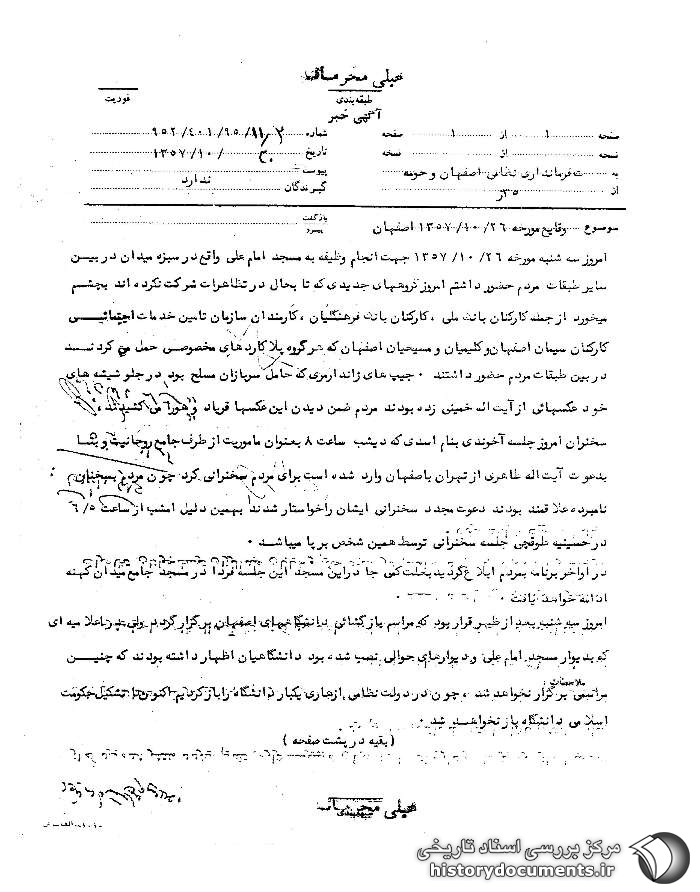 خیلی محرمانه
طبقه‌بندی
فوریت
آگهی خبر
صفحه ۱ از ۱ صفحه
شماره ۹۵۲/۴۰۱/۶۵/۱۱/۲
نسخه از نسخه
تاریخ ۳۰/۱۰/۱۳۵۷
به فرمانداری نظامی اصفهان و حومه
پیوست ندارد
از
گیرندگان
بازگشت
پیرو
موضوع وقایع مورخه ۲۶/۱۰/۱۳۵۷ اصفهان
امروز سه شنبه مورخه ۲۶/۱۰/۱۳۵۷ جهت انجام وظیفه به مسجد امام علی واقع در سبزه میدان در بین
سایر طبقات مردم حضور داشتم امروز گروههای جدیدی که تا بحال در تظاهرات شرکت نکرده اند بچشم
میخورد از جمله کارکنان بانک ملی ، کارکنان بانک فرهنگیان ، کارمندان سازمان تامین خدمات اجتماعی
کارکنان سیمان اصفهان و کلیمیان و مسیحیان اصفهان که هر گروه پلاکاردهای مخصوصی حمل می کردند
در بین طبقات مردم حضور داشتند . جیپ های ژاندارمری که حامل سربازان مسلح بود در جلو شیشه های
خود عکسهائی از آیت اله خمینی زده بودند مردم ضمن دیدن این عکسها فریاد و هورا می کشیدند .
سخنران امروز جلسه آخوندی بنام اسدی که دیشب ساعت ۸ بعنوان ماموریت از طرف جامع روحانیت و بنا
بدعوت آیت اله طاهری از تهران باصفهان وارد شده است برای مردم سخنرانی کرد چون مردم بسخنان
نامبرده علاقمند بودند دعوت مجدد سخنرانی ایشان را خواستار شدند بهمین دلیل امشب از ساعت ۶/۵
در حسینیه طوقچی جلسه سخنرانی توسط همین شخص بر پا میباشد .
در اواخر برنامه بمردم ابلاغ گردید بعلت کمی جا در این مسجد این جلسه فردا در مسجد جامع میدان کهنه
ادامه خواهد یافت .
امروز سه شنبه بعد از ظهر قرار بود که مراسم بازگشائی دانشگاههای اصفهان برگزار گردد ولی در اعلامیه ای
که بدیوار مسجد امام علی و دیوارهای حوالی نصب شده بود دانشگاهیان اظهار داشته بودند که چنین
ملاحظات
مراسمی برگزار نخواهد شد ، چون در دولت نظامی ازهاری یکبار دانشگاه را باز کردیم اکنون تا تشکیل حکومت
اسلامی دانشگاه باز نخواهد شد .
( بقیه در پشت صفحه )
خیلی محرمانه
طبقه‌بندی
مرکز بررسی اسناد تاریخی
historydocuments.ir